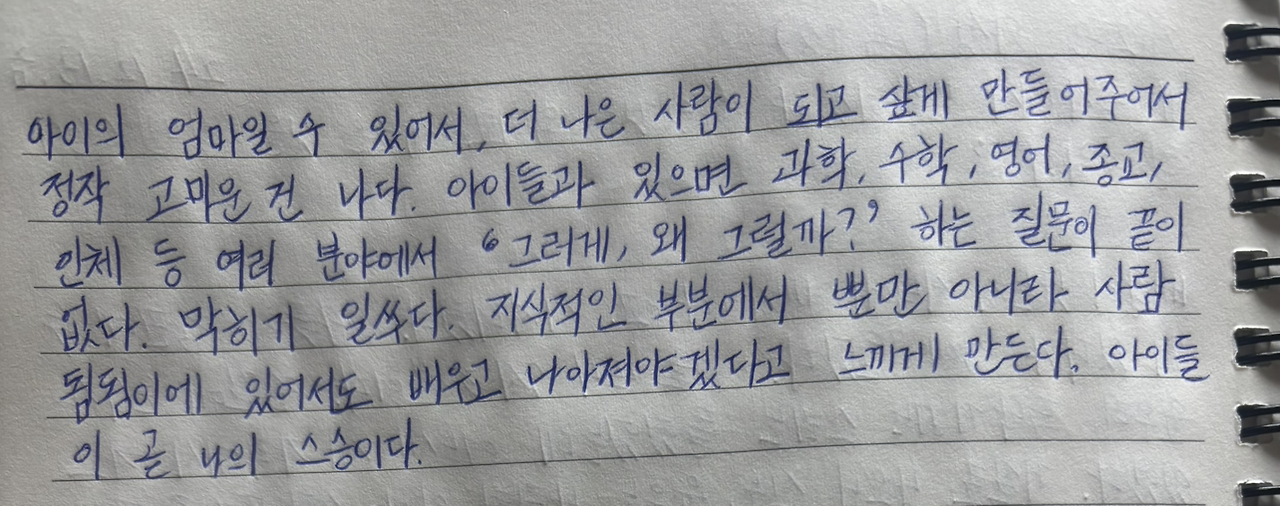 아이의 엄마일 수 있어서, 더 나은 사람이 되고 싶게 만들어주어서
정작 고마운 건 나다. 아이들과 있으면 과학, 수학, 영어, 종교,
인체 등 여러 분야에서 '그러게, 왜 그럴까?' 하는 질문이 끝이
없다. 막히기 일쑤다. 지식적인 부분에서 뿐만 아니라 사람
됨됨이에 있어서도 배우고 나아져야겠다고 느끼게 만든다. 아이들
이 곧 나의 스승이다.